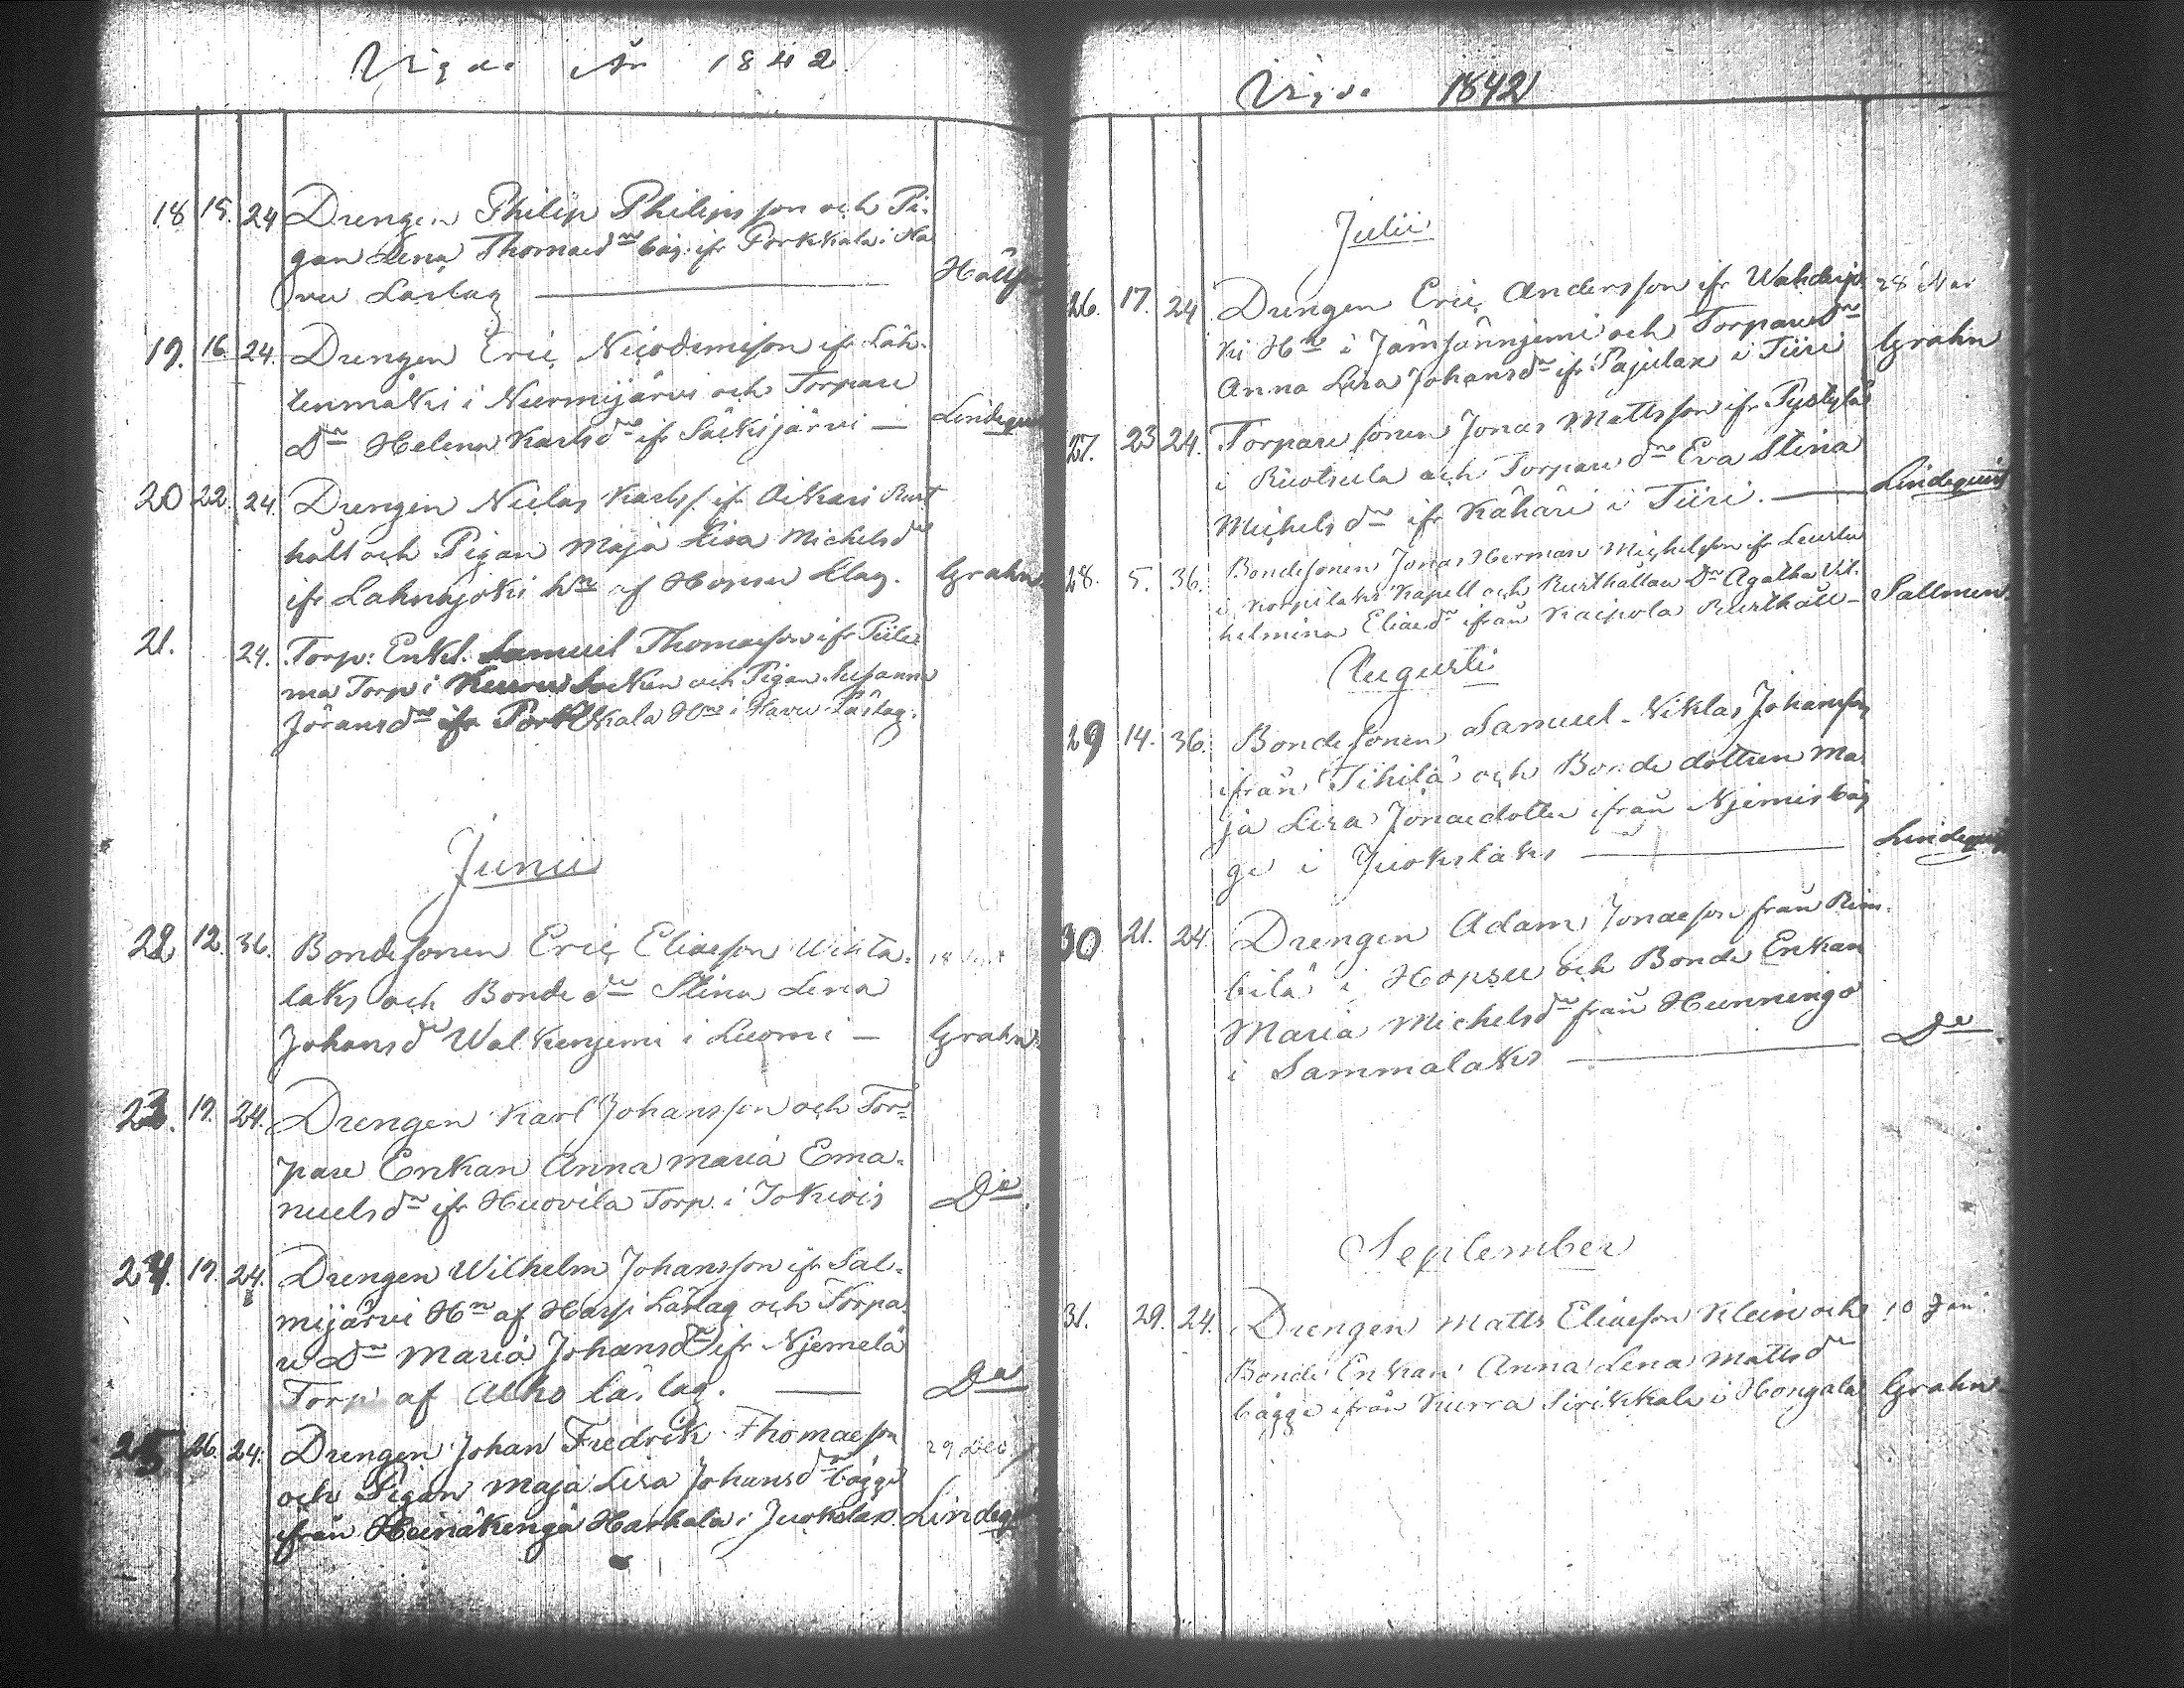 Vigde År 1842
18 15. 24 Drengen Philip Philipsson och Pi-
gan Lena Thomaedr bäg. ifr Porkkala i Ha
vu Låslag Hällfo
19. 16. 24. Drengen Eric Nicodemison ifr Läh-
tenmäki i Nurmijärvi och Torpare
Dr Helena Karlsdr ifr Säkisjärvi — Lindequ
20 22. 24. Drengen Niclas Karlss. ifr Oikari Rust
håll och Pigan Maja Lisa Michelsdr
ifr Lahnajoki Hn af Hopsu Llag. Grahn.
21. 24. Torp: Enkl. Samuel Thomaeson ifr Piile
ma Torp i Kuru Sockn och Pigan Susanna
Jöransdr ifr Porkkala Hn i Havu Låslag.
Junii
22 12. 36. Bondesonen Eric Eliaeson Wihta-
laks och Bondedr Stina Lena
Johansdr Walkenjemi i Luomi — Grahn.
23. 19. 24. Drengen Karl Johansson och Tor-
pare Enkan Anna Maria Ema-
nuelsdr ifr Huovila Torp. i Jokivois Do.
24. 19. 24. Drengen Wilhelm Johansson ifr Sal-
mijärvi Hn af Harj Låslag och Torpa-
re Dr Maria Johansdr ifr Njemelä
Torp af Alho Låslag. — Do
25 26. 24. Drengen Johan Fredrik Thomaeson 29 Dec.
och Pigan Maja Lisa Johansdr bägge
från Heinäkengä Harhala i Juokslax. Lindeq
Vigde 1842
Julii
26. 17. 24 Drengen Eric Andersson ifr 28 Mai
ki Hn i Jämsännjemi och Torparedr
Anna Lisa Johansdr ifr Pajulax i Tiiri Grahn
27. 23 24. Torpare sonen Jonas Mattsson ifr Pyölylä
i Ruotsula och Torpare dr Eva Stina
Michelsdr ifr Kähäri i Tiiri. — Lindequist
28. 5. 36. Bondesonen Jonas Herman Michelsson ifr Leustu
i Korpilaks Kapell och Rusthållare Dr Agatha Vil-
helmina Eliaedr ifrån Kaipola Rusthåll — Sallmen.
Augusti
29 14. 36. Bondesonen Samuel Niklas Johansson
ifrån Tihilä och Bonde dottren Ma
ja Lisa Jonaedotter ifrån Njemis bäg
ge i Juokslaks — Lindequist
30 21. 24. Drengen Adam Jonaeson från Rim-
bilä i Hopsu och Bonde Enkan
Maria Michelsdr från Hunningo
i Sammalaks — Do.
September
31. 29. 24. Drengen Matts Eliaeson Klein och 10 Jan:
Bonde Enkan Anna Lena Mattsdr
bägge ifrån Kurra Sirikkala i Hongala Grahn